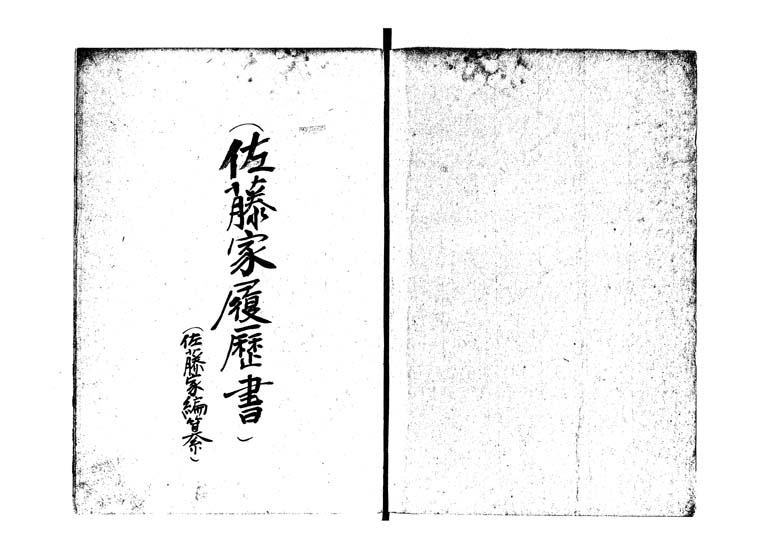 （佐藤家履歴書）
（佐藤家編纂）